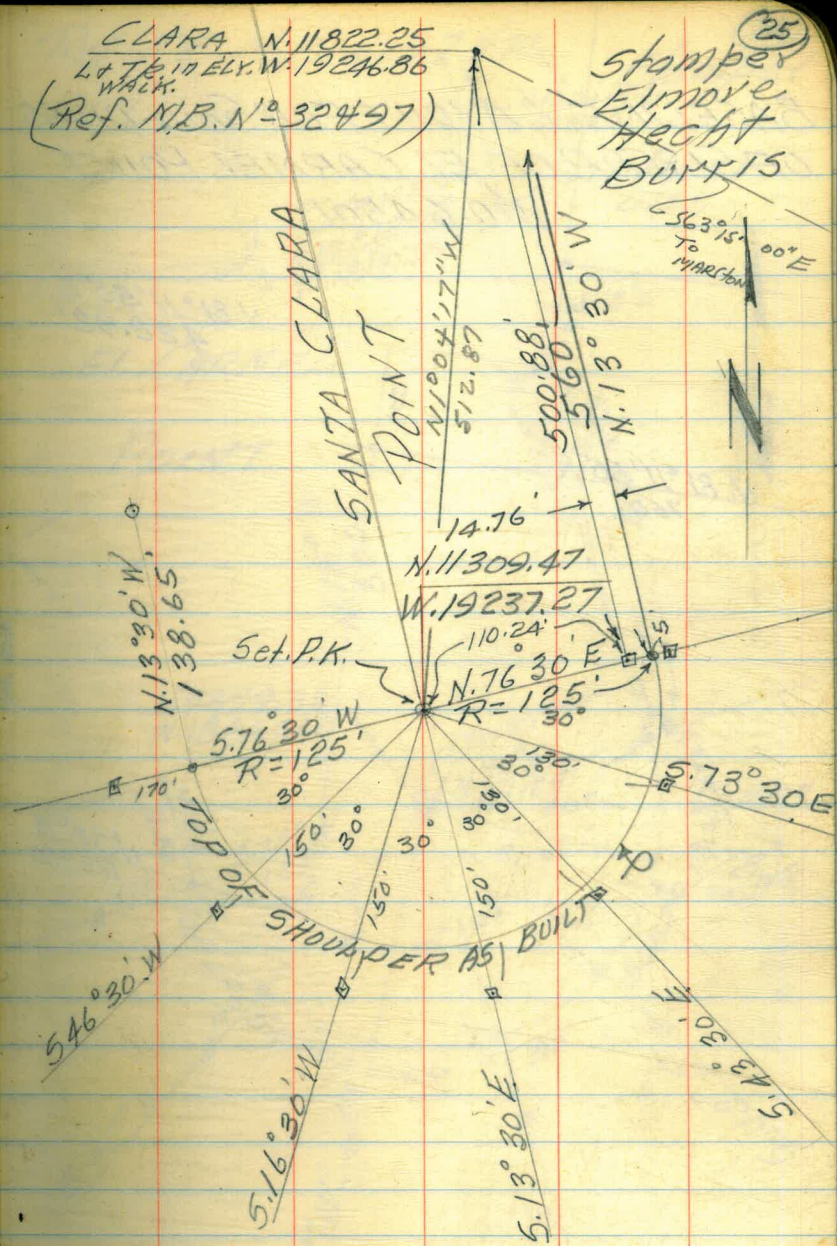 25
CLARA N.11822.25
L & Tk. in ELY. W.19246.86
WALK.
(Ref. M.B. Nº 32497)
Stamper
Elmore
Hecht
Burris
S63°15' 00"E
To
MARSTON
N
SANTA CLARA
POINT
N1°04'17"W
512.87
500.88'
560'
N.13°30'W
14.76'
N.11309.47
W.19237.27
110.24'
5'
Set.P.K.
N.76°30'E
R=125'
30°
N.13°30'W.
138.65
S.76°30'W
R=125'
30°
170'
130'
30°
S.73°30E
130'
30°
150'
30°
30°
150'
150'
TOP OF SHOULDER AS BUILT
S46°30'W
S.16°30'W
S.13°30'E
S.43°30'E